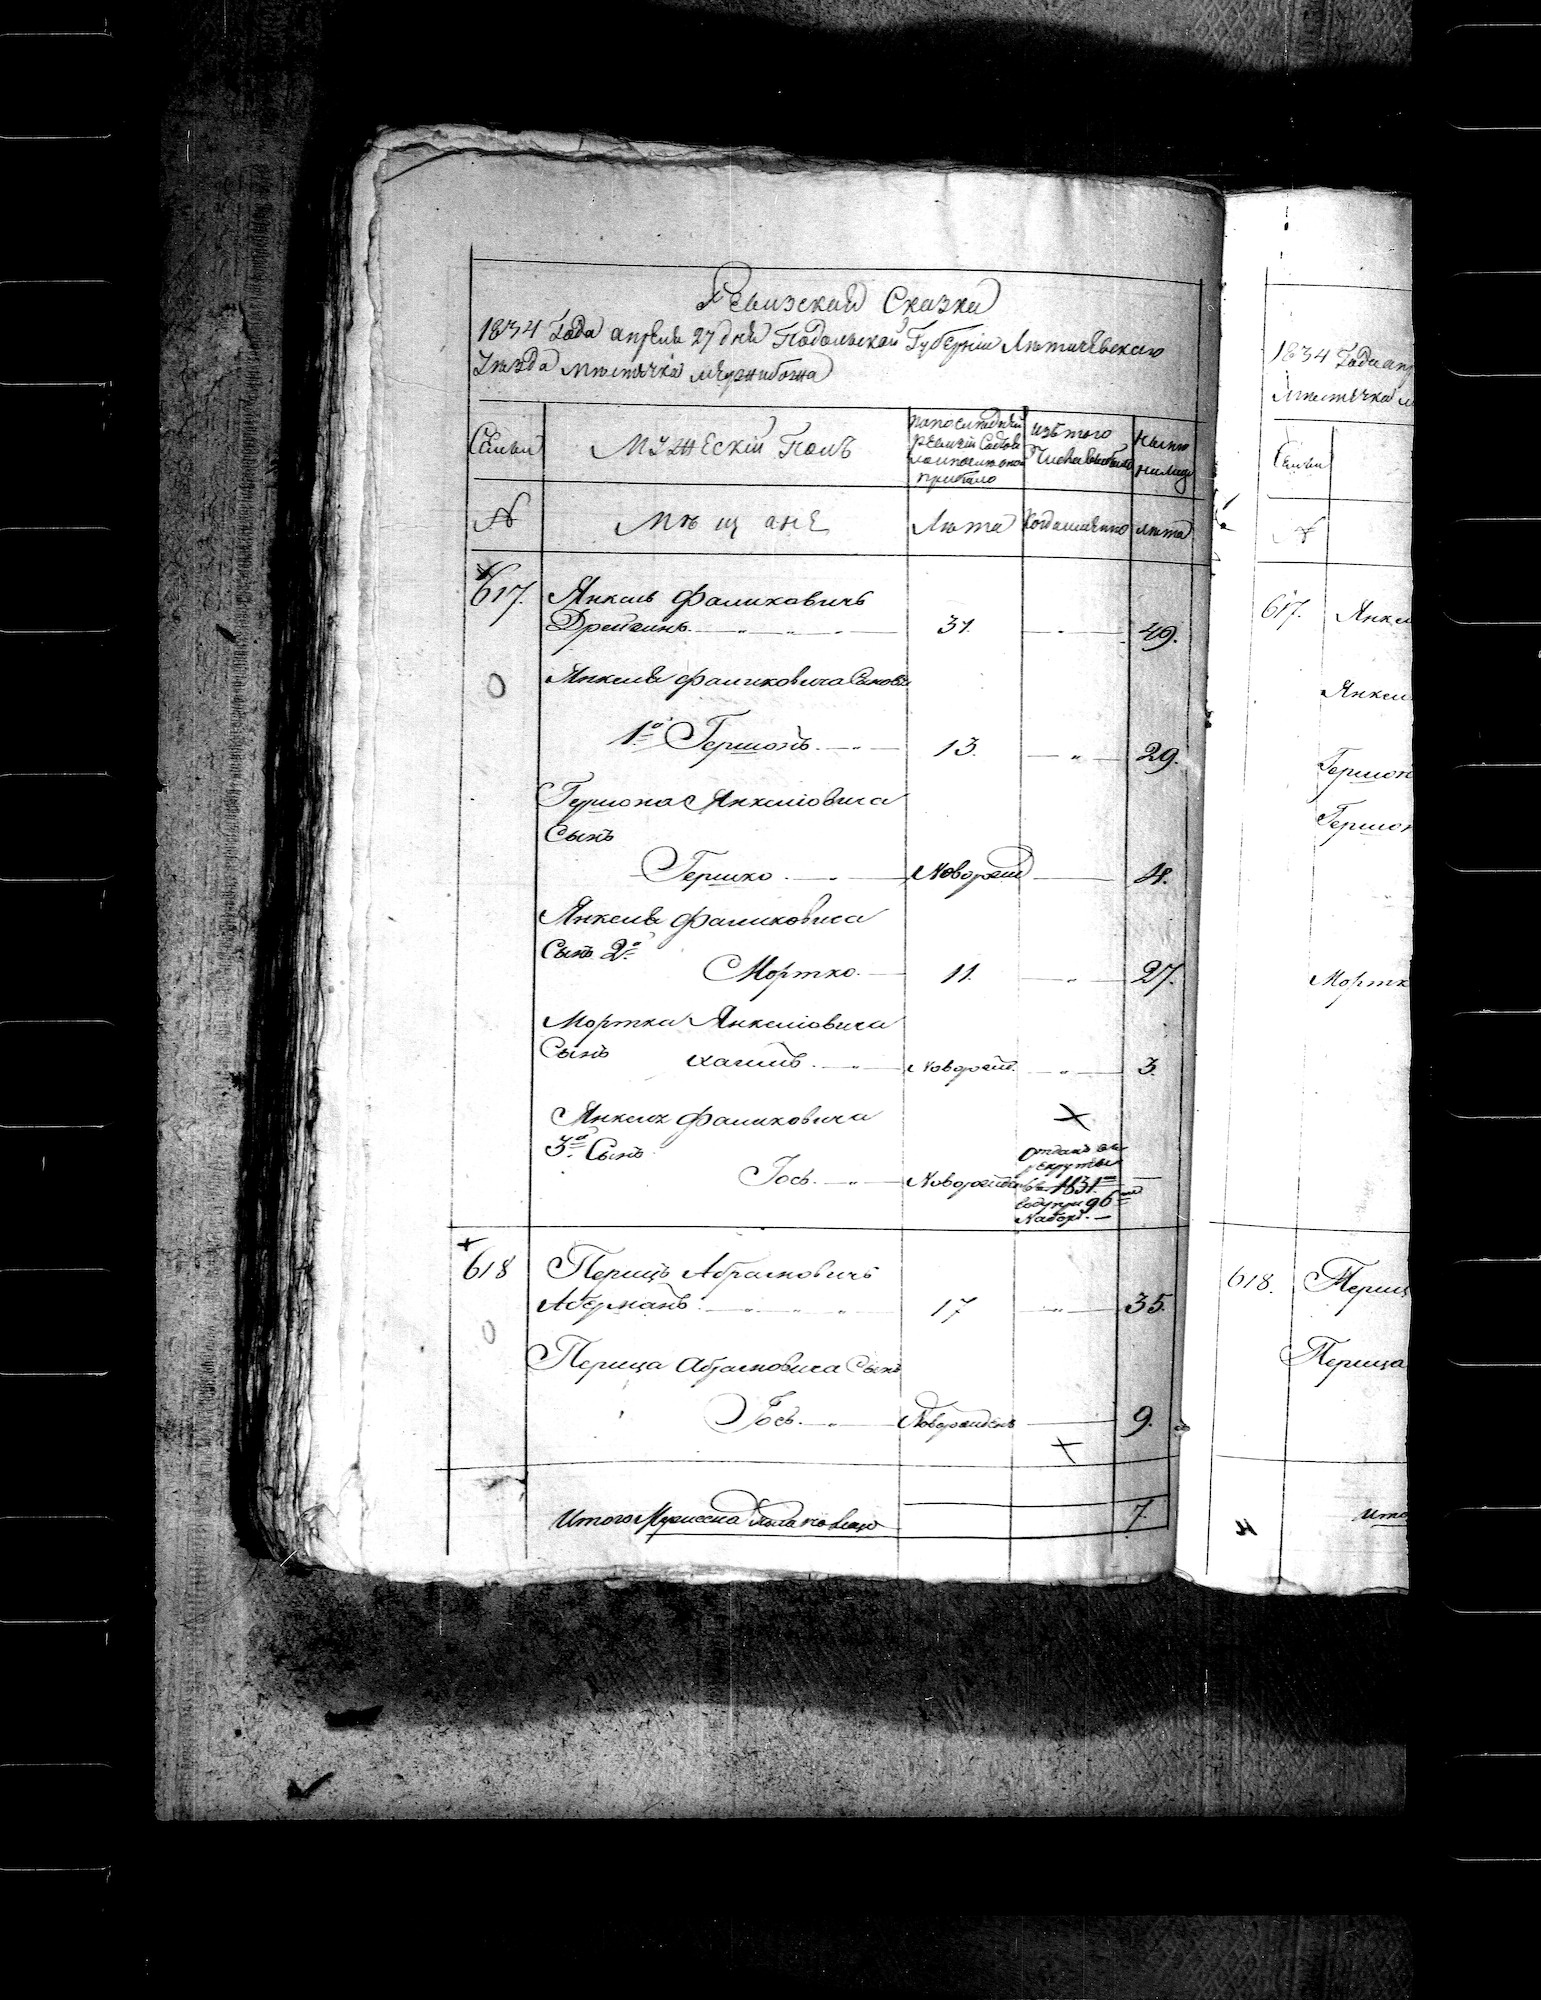 Ревизская Сказка
1834 Года апреля 27 дня Подольской Губернии Летичевскаго
Уезда местечка Межибожа
Семьи
Мужеский Полъ
изъ того
Числа выбыло
ныне
налицо
№
Мещане
Лета
Когда именно
лета
617. Янкель Фаликовичъ
Дрейзинъ. 31. 49.
Янкеля Фаликовича Сыновья
1й Гершонъ. 13. 29.
Гершона Янкелiовича
Сынъ
Гершко Новорожд 4.
Янкеля Фаликовича
Сынъ 2й
Мортко. 11. 27.
Мортка Янкелiовича
Сынъ Хаимъ. Новорожд. 3.
Янкеля Фаликовича
3й Сынъ
Iось. Новорожденъ
отданъ въ
рекруты
въ 1831мъ
году при 96мъ
наборе.
618 Перицъ Абрамовичъ
Аберманъ. 17 35.
Перица Абрамовича Сынъ
Iось. Новорожденъ 9.
Итого Мужеска пола на лицо 7.
1834 Года апр
местечка М
Семьи
№
617. Янкел
Янкел
Гершон
Гершон
Мортк
618. Периц
Перица
Ито